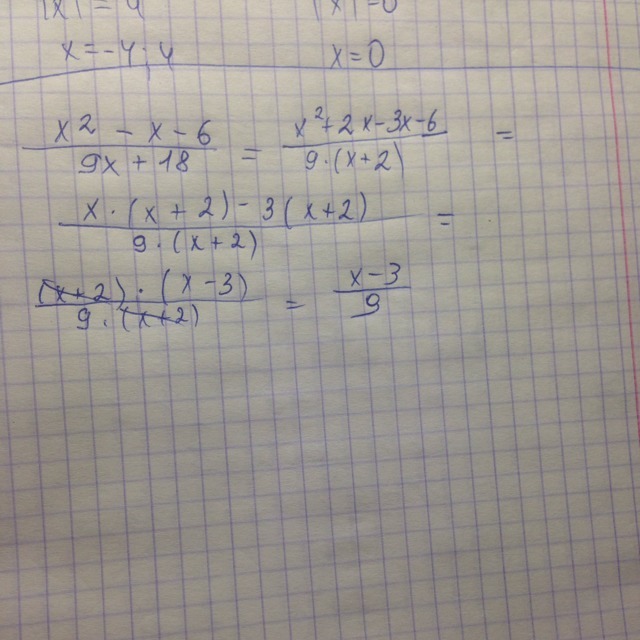 |x| = 4 |x| = 0
x = -4; 4 x = 0
(x² - x - 6)/(9x + 18) = (x² + 2x - 3x - 6)/(9·(x+2)) =
(x·(x + 2) - 3(x+2))/(9·(x+2)) =
((x+2)·(x-3))/(9·(x+2)) = (x-3)/9